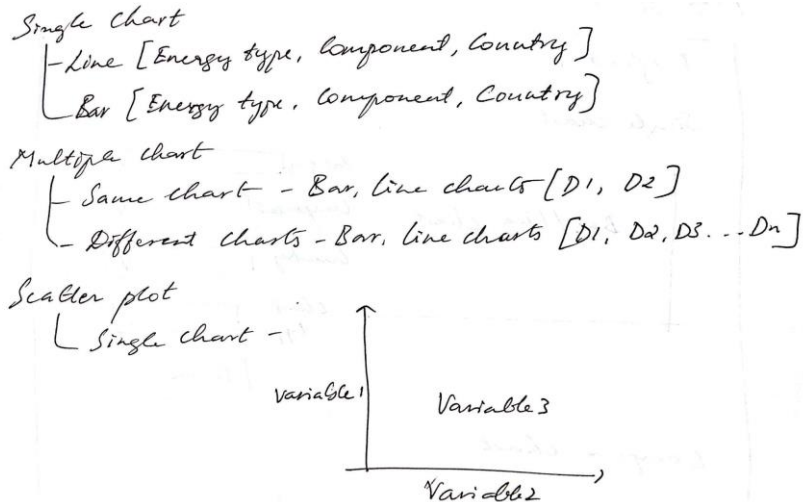 Single Chart
Line [Energy type, Component, Country]
Bar [Energy type, Component, Country]
Multiple Chart
Same chart - Bar, line charts [D1, D2]
Different charts - Bar, line charts [D1, D2, D3...Dn]
Scatter plot
Single chart -
Variable1
Variable3
Variable2